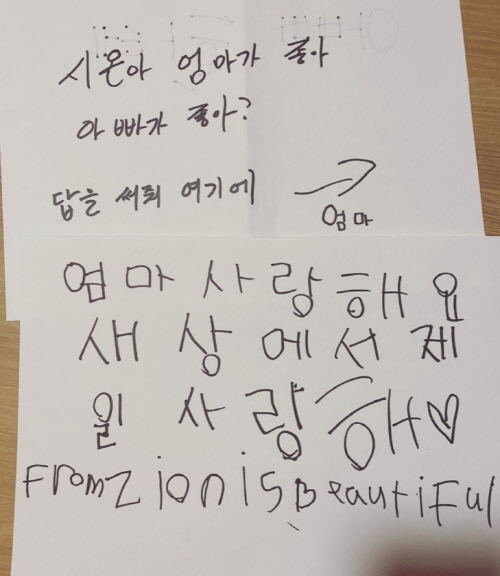 시온아 엄마가 좋아
아빠가 좋아?
답을 써줘 여기에
엄마
엄마사랑해요
새상에서제
일사랑해♡
From Zion is Beautiful